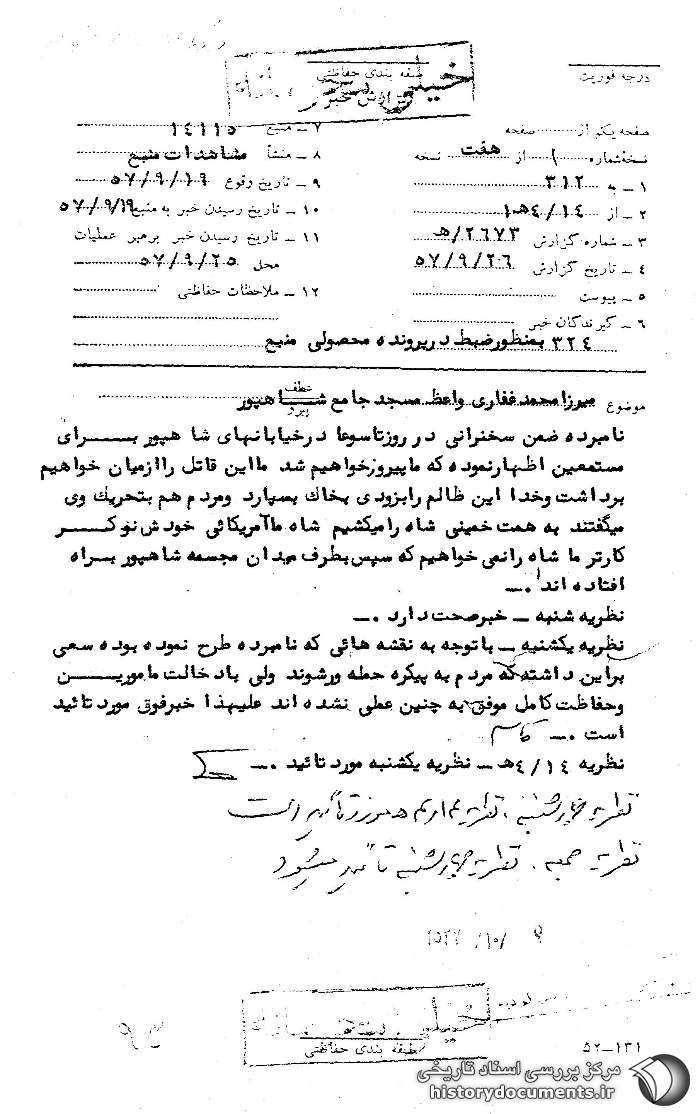 خیلی محرمانه
طبقه بندی حفاظتی
گزارش خبر
درجه فوریت
صفحه یکم از صفحه
نسخه شماره ۱ از هفت نسخه
۱ ـ به ۳۱۲
۲ ـ از ۴/۱۴ه‍۱
۳ ـ شماره گزارش ۲۶۷۳/ه‍
۴ ـ تاریخ گزارش ۵۷/۹/۲۶
۵ ـ پیوست
۶ ـ گیرندگان خبر
۷ ـ منبع ۱۴۱۱۵
۸ ـ منشأ مشاهدات منبع
۹ ـ تاریخ وقوع ۵۷/۹/۱۹
۱۰ ـ تاریخ رسیدن خبر به منبع ۵۷/۹/۱۹
۱۱ ـ تاریخ رسیدن خبر برهبر عملیات
محل ۵۷/۹/۲۵
۱۲ ـ ملاحظات حفاظتی
۳۲۴ بمنظور ضبط در پرونده محصولی منبع
موضوع میرزا محمد غفاری واعظ مسجد جامع شاهپور
عطف
پیرو
نامبرده ضمن سخنرانی در روز تاسوعا در خیابانهای شاهپور بــرای
مستمعین اظهار نموده که ما پیروز خواهیم شد ما این قاتل را از میان خواهیم
برداشت و خدا این ظالم را بزودی بخاک بسپارد و مردم هم بتحریک وی
میگفتند به همت خمینی شاه را میکشیم شاه ما آمریکائی خودش نوکــر
کارتر ما شاه را نمی خواهیم که سپس بطرف میدان مجسمه شاهپور براه
افتاده اند ۰ـ
نظریه شنبه ـ خبر صحت دارد ۰ـ
نظریه یکشنبه ـ با توجه به نقشه هائی که نامبرده طرح نموده بوده سعی
براین داشته که مردم به پیکره حمله ورشوند ولی با دخالت مامورین
و حفاظت کامل موفق به چنین عملی نشده اند علیهذا خبر فوق مورد تائید
است ۰ـ
نظریه ۴/۱۴ه‍ ـ نظریه یکشنبه مورد تائید ۰ـ
نظریه چهارشنبه ۰ نظریه ۴ه‍۱ مورد تأیید است
نظریه جمعه ۰ نظریه چهارشنبه تأیید میشود
خیلی محرمانه
طبقه بندی حفاظتی
۵۲ـ۱۳۱
مرکز بررسی اسناد تاریخی
historydocuments.ir